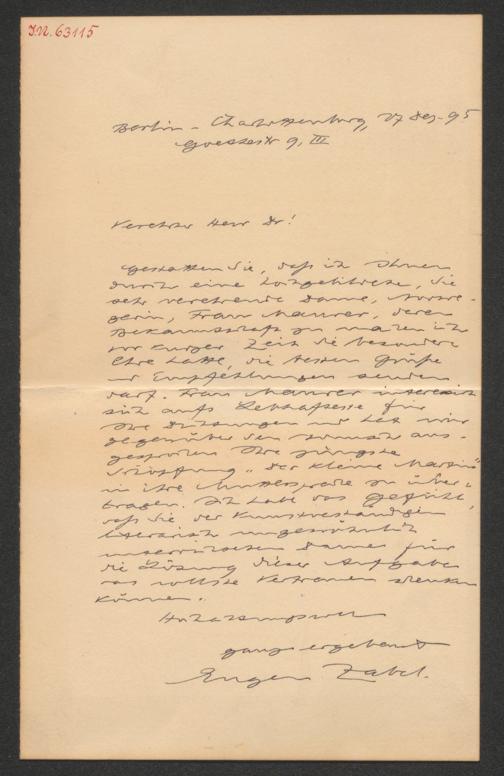 J.N. 63115
Berlin - Charlottenburg, 27 Dez. 95
Goethestr 9, III
Verehrter Herr Dr!
Gestatten Sie, daß ich Ihnen
durch eine hochgebildete, Sie
sehr verehrende Dame, Norwe-
gerin, Frau Maurer, deren
Bekanntschaft zu machen ich
vor kurzer Zeit die besondere
Ehre hatte, die besten Grüße
und Empfehlungen senden
darf. Frau Maurer interessirt
sich aufs Lebhafteste für
Ihre Dichtungen und hat mir
gegenüber den Wunsch aus-
gesprochen Ihre jüngste
Schöpfung „Der kleine Martin“
in ihre Muttersprache zu über-
tragen. Ich habe das Gefühl,
daß Sie der kunstverständigen
literarisch ungewöhnlich
unterrichteten Dame für
die Lösung dieser Aufgabe
das vollste Vertrauen schenken
können.
Hochachtungsvoll
ganz ergebenst
Eugen Zabel.